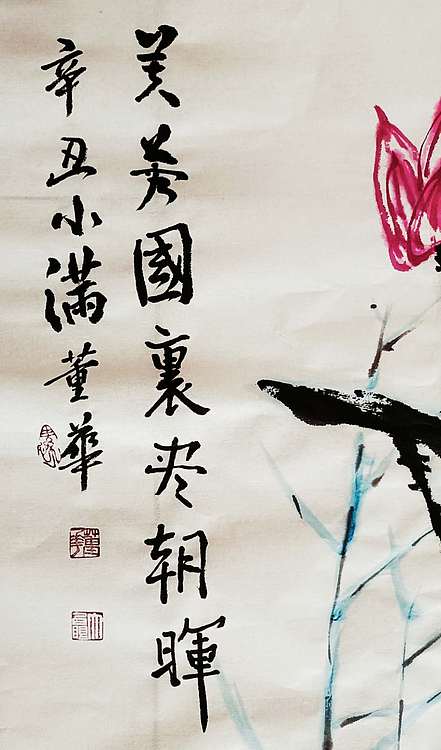 芙蓉國裏尽朝暉
辛丑小滿董華